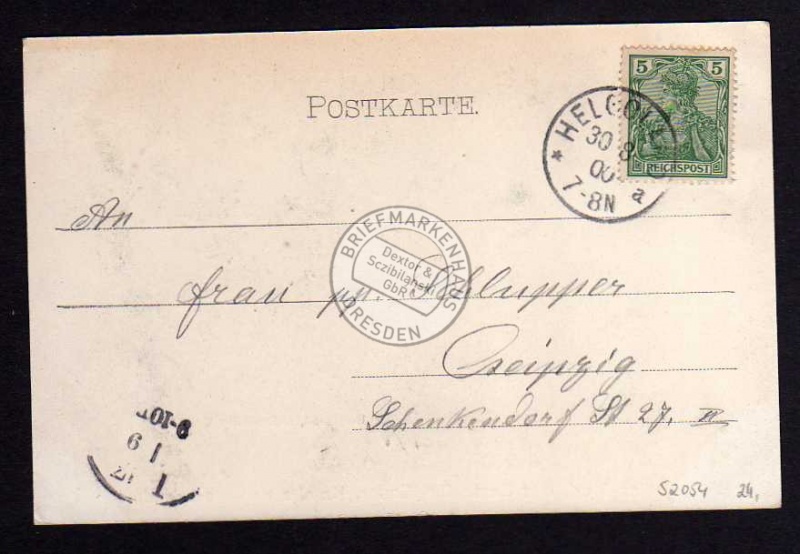 POSTKARTE.
5 5
REICHSPOST
* HELGOLAND
30 8
00
7-8N a
An
Frau
Schlupper
Leipzig
Schenkendorf St 27. II
BRIEFMARKENHAUS
Dextor &
Sczibilanski
GbR
DRESDEN
9-10V
1 9
S2054 24,